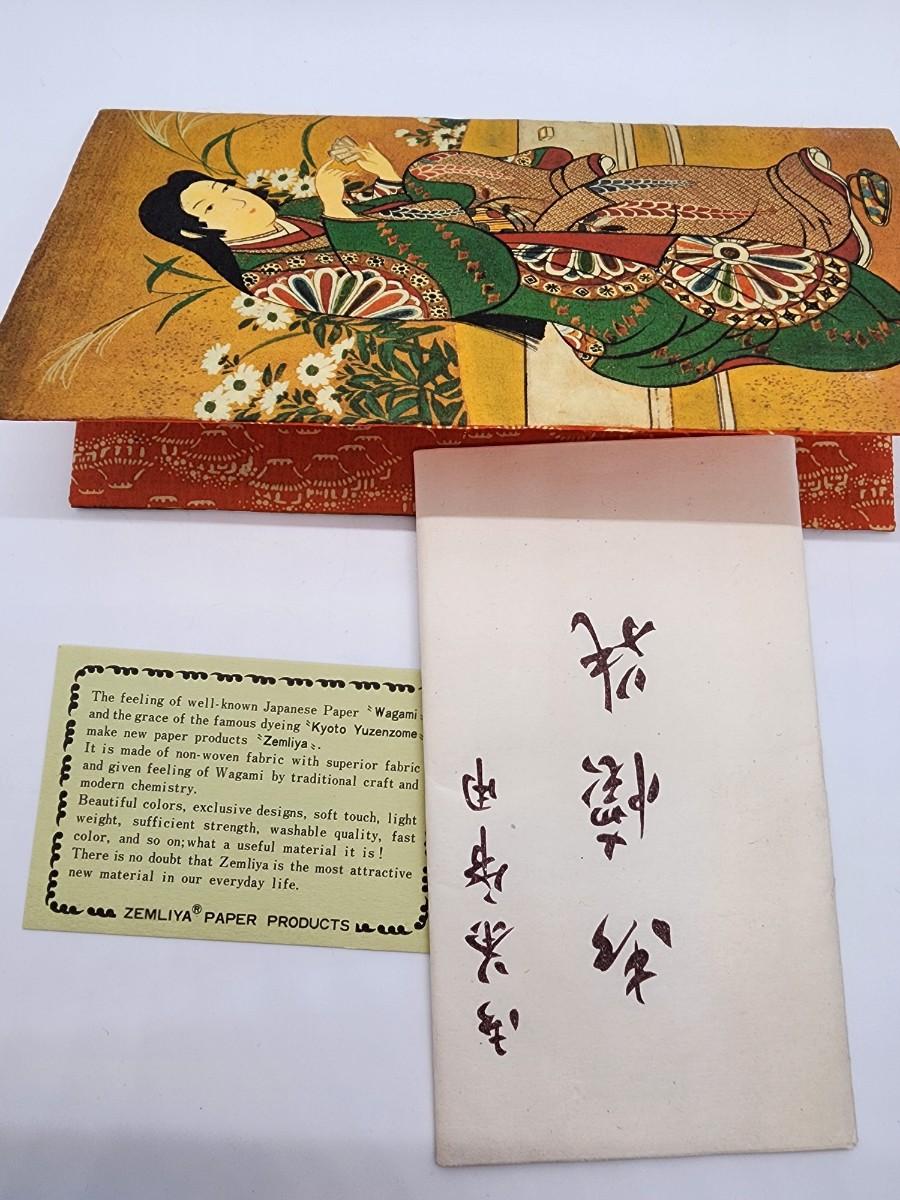 The feeling of well-known Japanese Paper〝Wagami〟
and the grace of the famous dyeing〝Kyoto Yuzenzome〟
make new paper products〝Zemliya〟.
It is made of non-woven fabric with superior fabric
and given feeling of Wagami by traditional craft and
modern chemistry.
Beautiful colors, exclusive designs, soft touch, light
weight, sufficient strength, washable quality, fast
color, and so on; what a useful material it is!
There is no doubt that Zemliya is the most attractive
new material in our everyday life.
ZEMLIYA® PAPER PRODUCTS